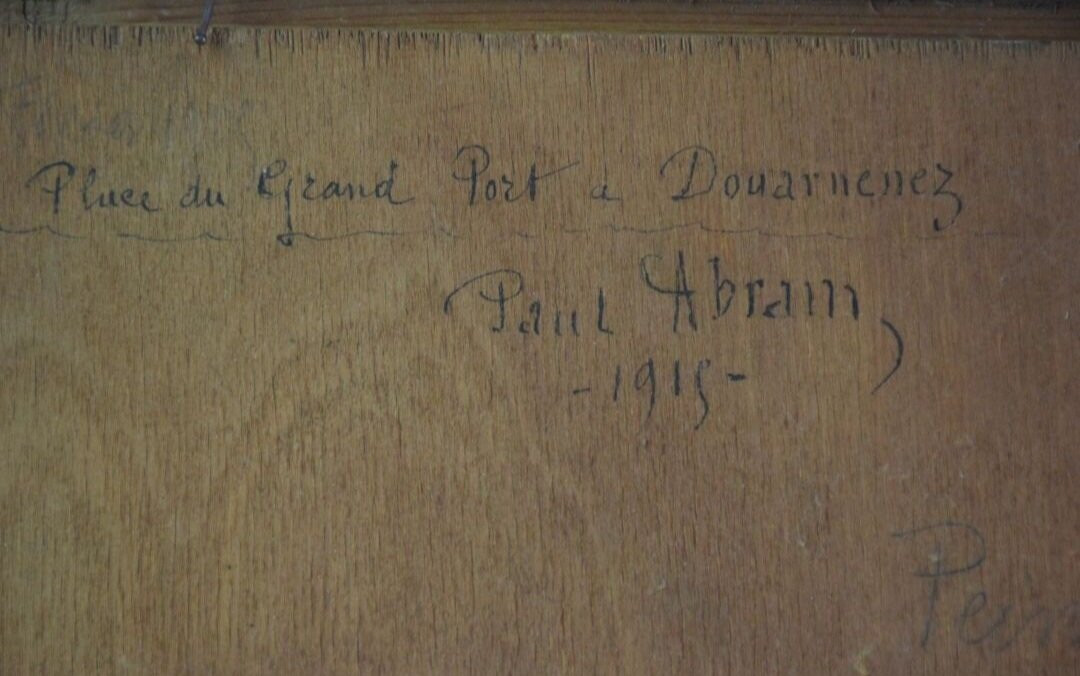 Place du Grand Port a Douarnenez
Paul Abram
-1915-